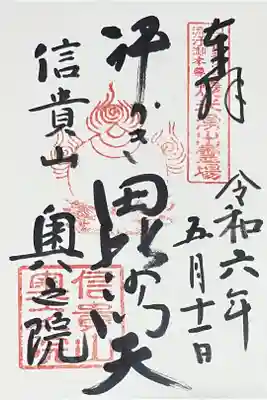 奉拝
令和六年
五月十一日
汗かき毘沙門天
信貴山
奥之院
信貴山
奥之院